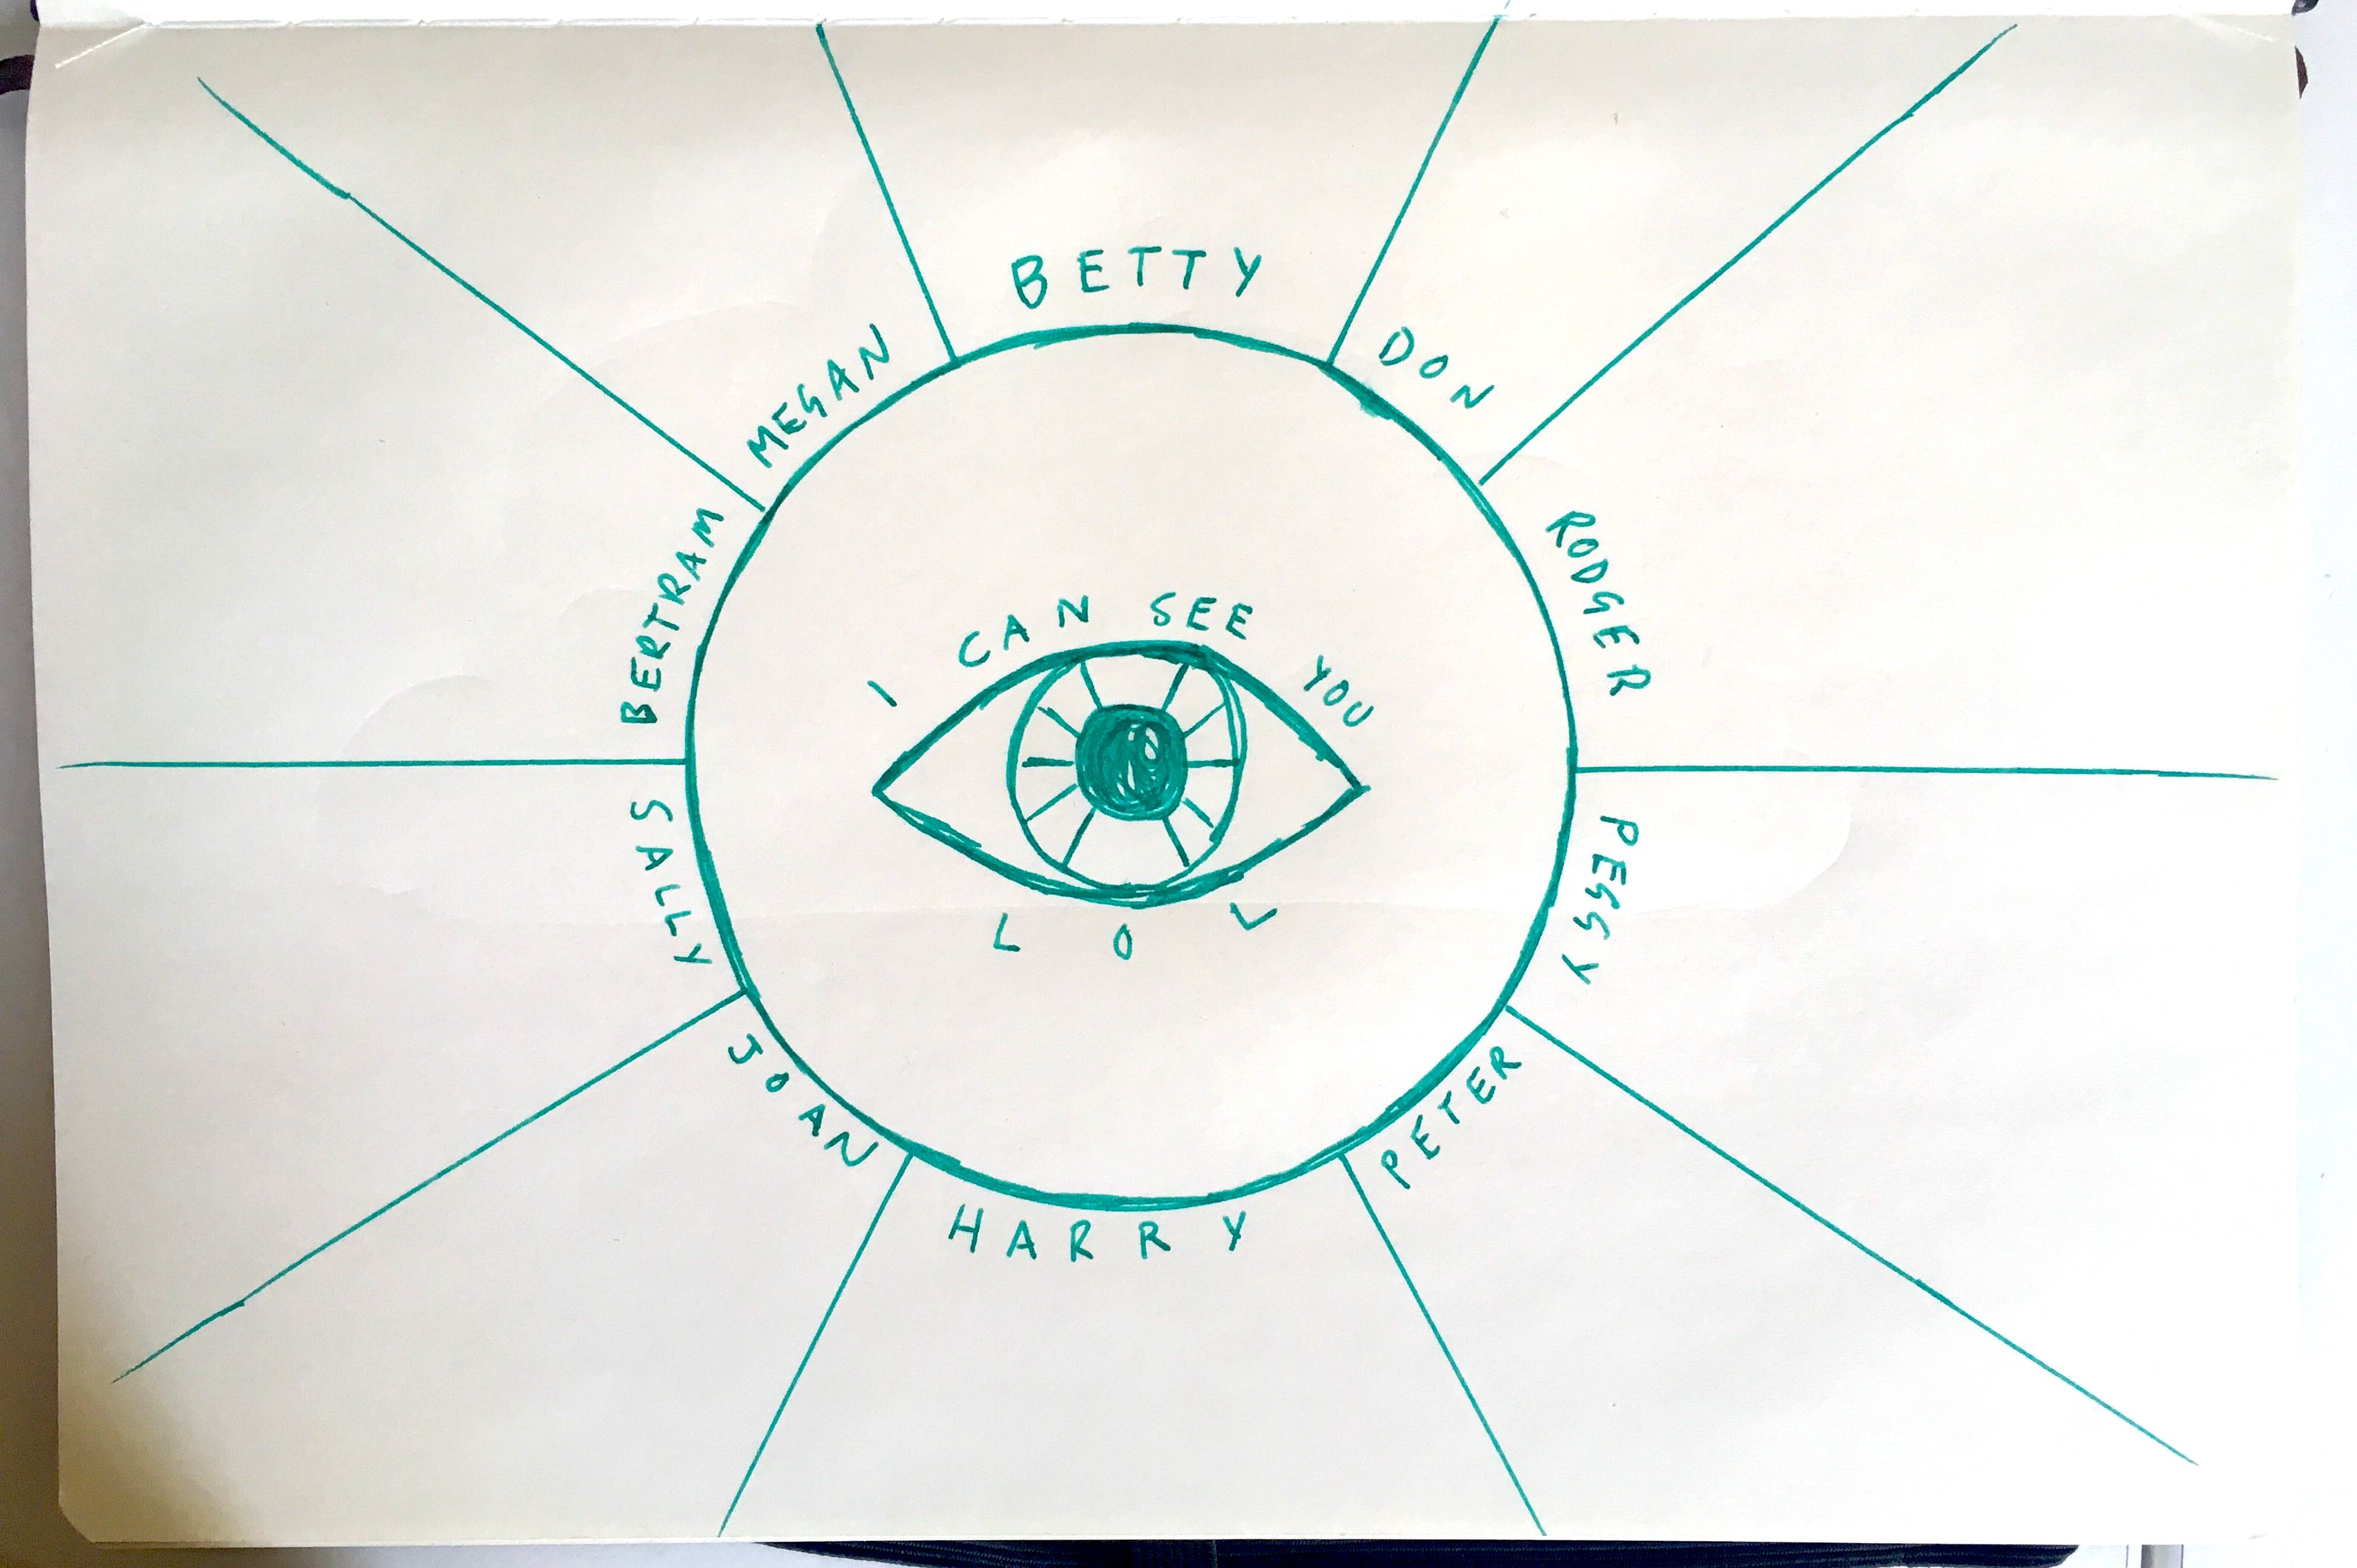 BETTY
DON
RODGER
PEGGY
PETER
HARRY
JOAN
SALLY
BERTRAM
MEGAN
I CAN SEE YOU
LOL